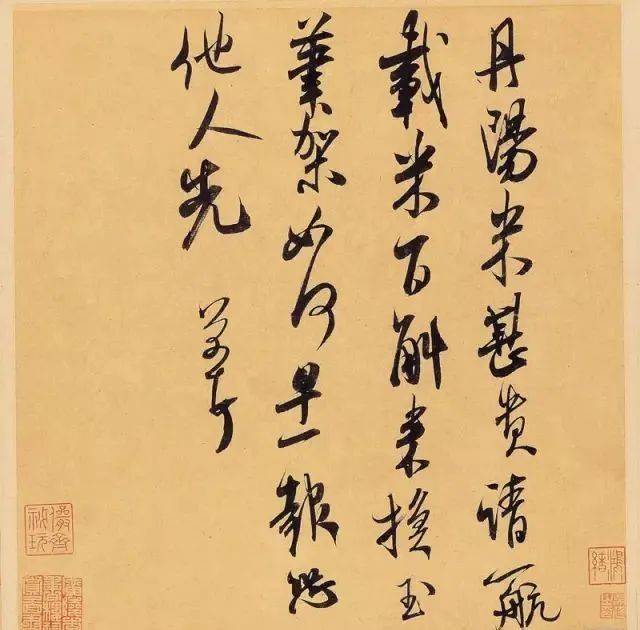 丹陽米甚貴請一航
載米百斛来換玉
筆架如何早一報恐
他人先 芾頓首
儼齋秘玩